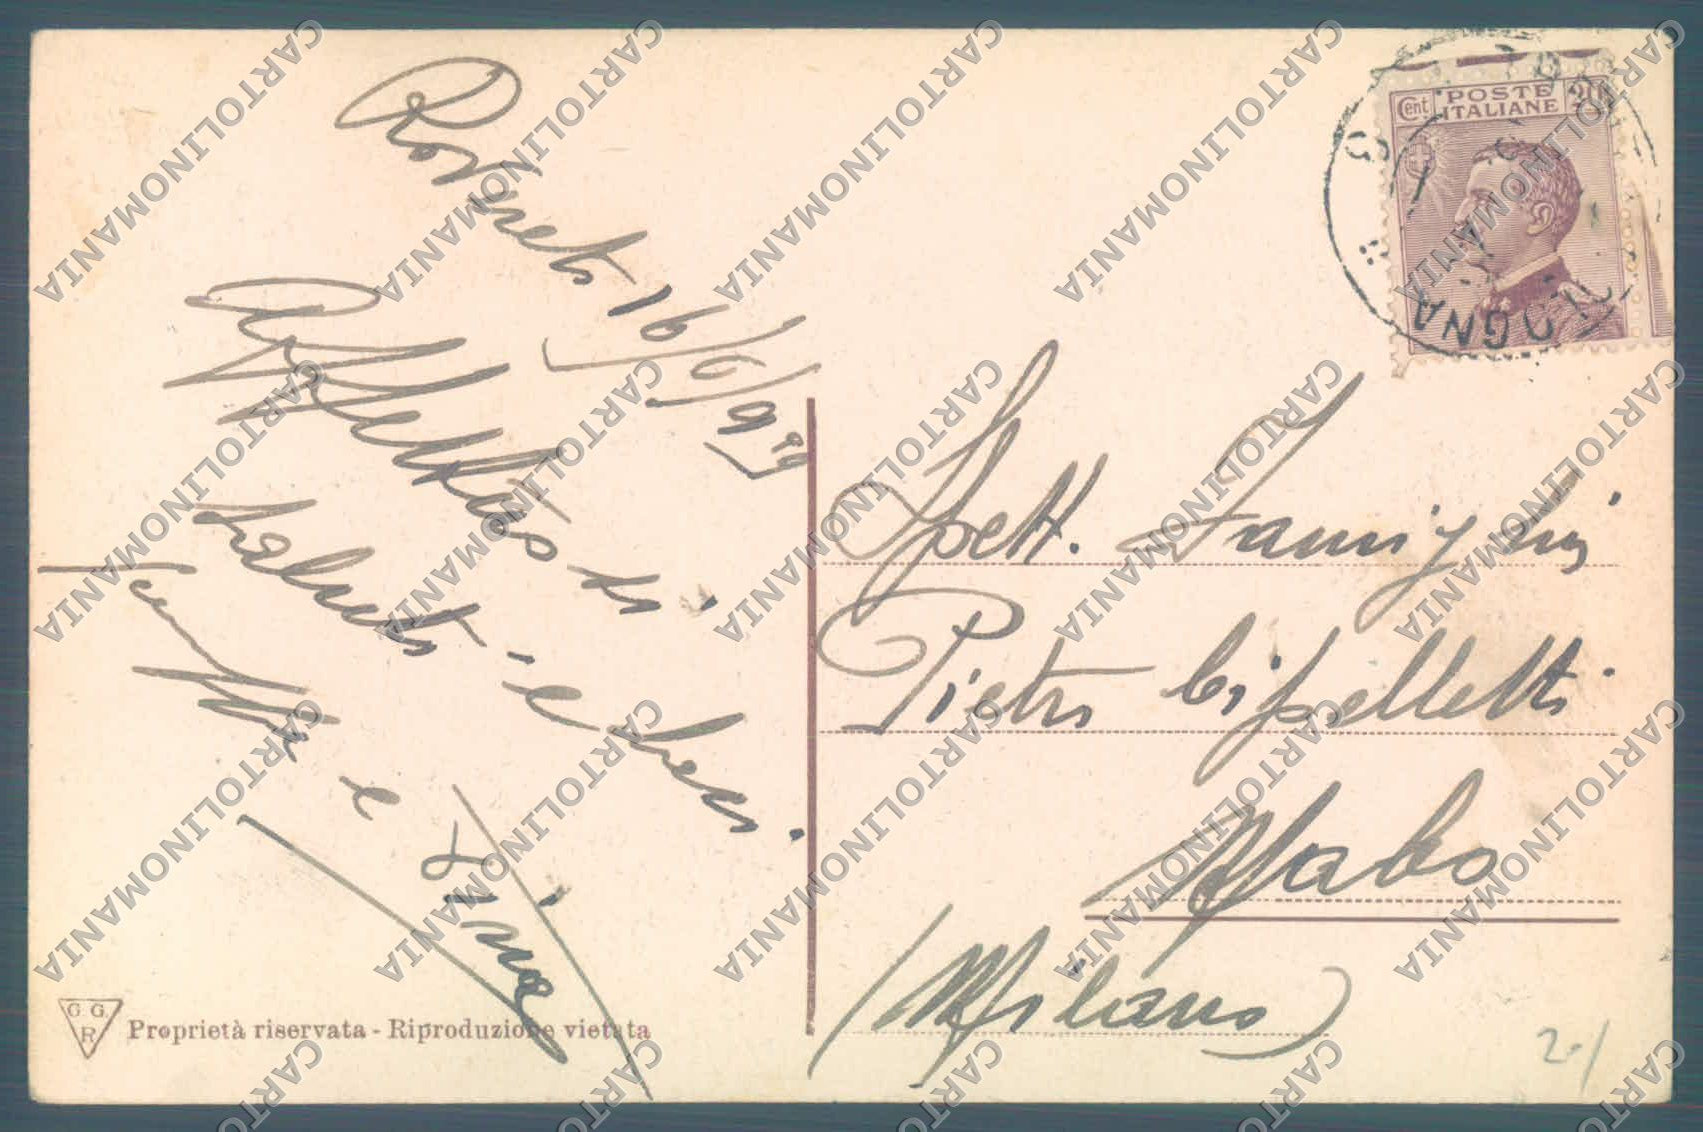 Rovereto 16/6/922
Affettuosi
saluti e baci
e Lina
Spett. Famiglia
Pietro Cipelletti
Mabo
(Milano)
Cent POSTE ITALIANE 20
OGNA
G. G. R
Proprietà riservata - Riproduzione vietata
2-/
CARTOLINOMANIA